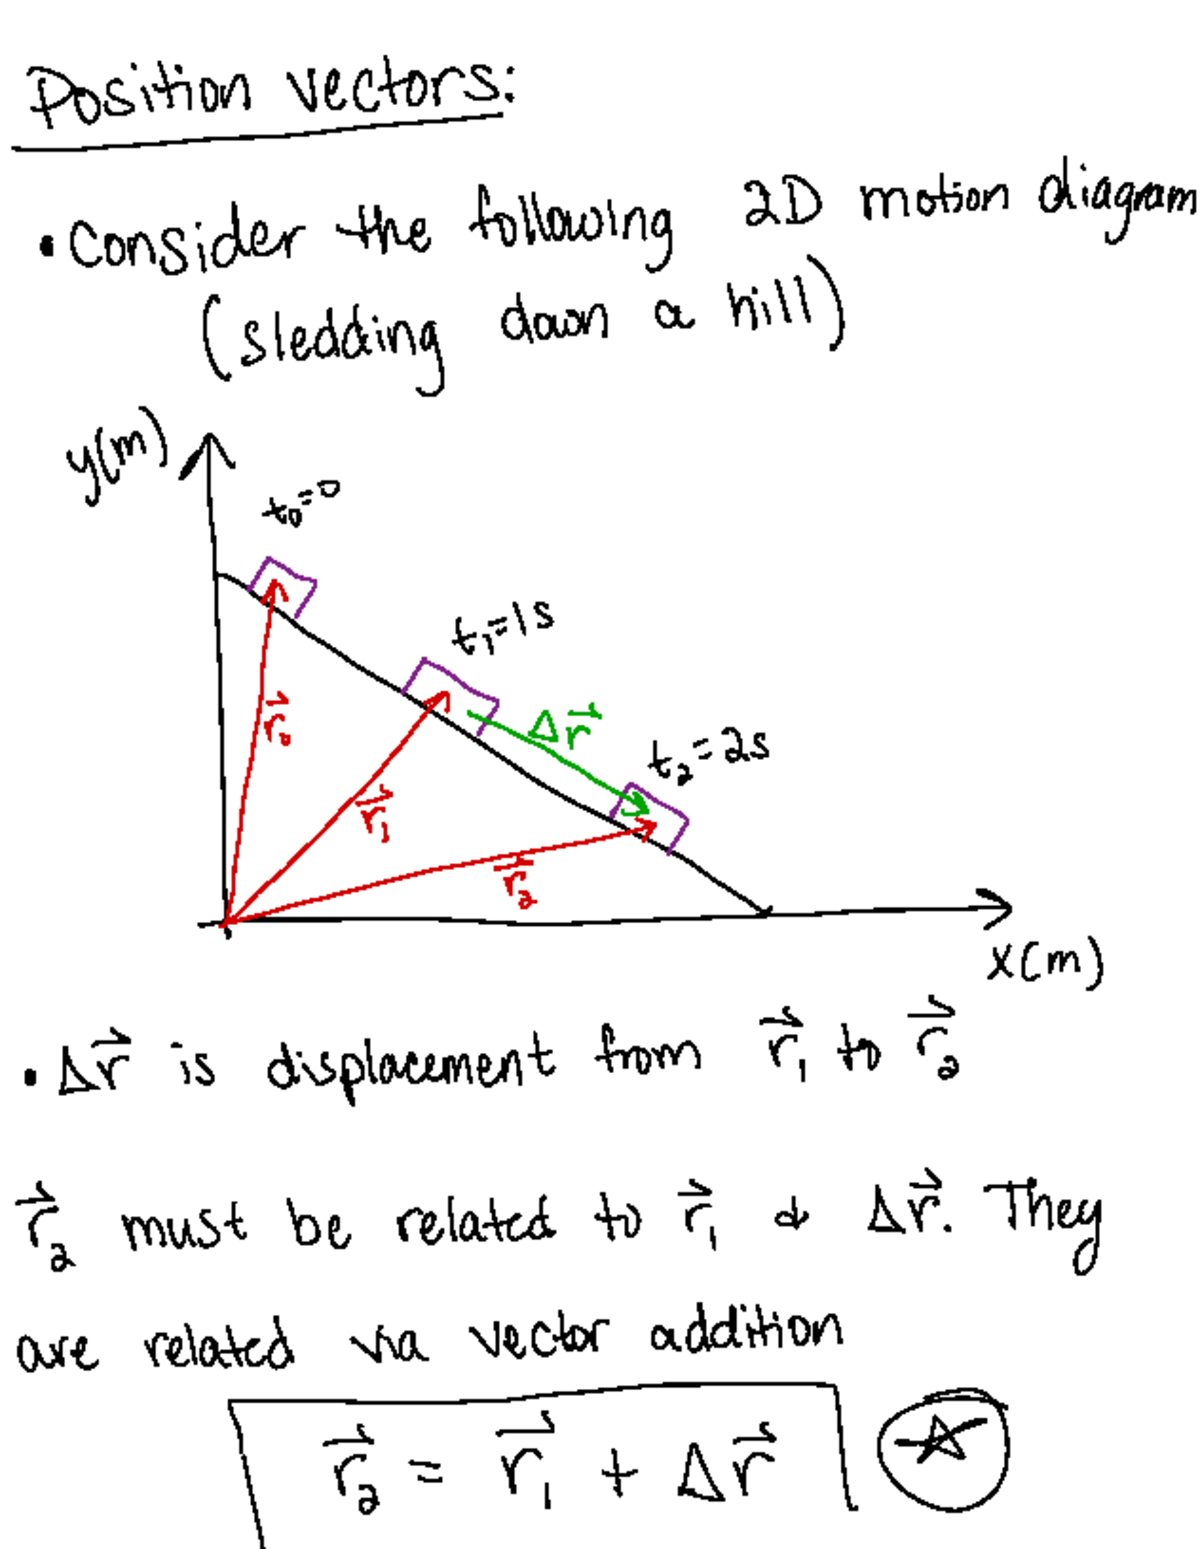 Position vectors:
• Consider the following 2D motion diagram
(sledding down a hill)
y(m)
t₀=0
t₁=1s
Δr⃗
t₂=2s
r⃗₀
r⃗₁
r⃗₂
x(m)
• Δr⃗ is displacement from r⃗₁ to r⃗₂
r⃗₂ must be related to r⃗₁ & Δr⃗. They
are related via vector addition
r⃗₂ = r⃗₁ + Δr⃗ ☆